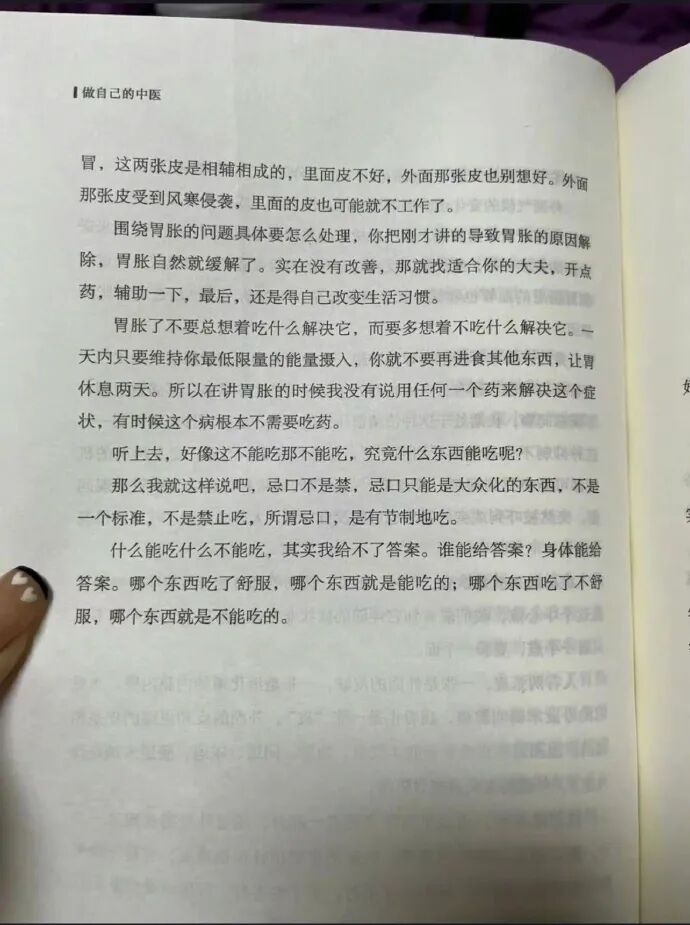 做自己的中医
冒，这两张皮是相辅相成的，里面皮不好，外面那张皮也别想好。外面
那张皮受到风寒侵袭，里面的皮也可能就不工作了。
围绕胃胀的问题具体要怎么处理，你把刚才讲的导致胃胀的原因解
除，胃胀自然就缓解了。实在没有改善，那就找适合你的大夫，开点
药，辅助一下，最后，还是得自己改变生活习惯。
胃胀了不要总想着吃什么解决它，而要多想着不吃什么解决它。一
天内只要维持你最低限量的能量摄入，你就不要再进食其他东西，让胃
休息两天。所以在讲胃胀的时候我没有说用任何一个药来解决这个症
状，有时候这个病根本不需要吃药。
听上去，好像这不能吃那不能吃，究竟什么东西能吃呢？
那么我就这样说吧，忌口不是禁，忌口只能是大众化的东西，不是
一个标准，不是禁止吃，所谓忌口，是有节制地吃。
什么能吃什么不能吃，其实我给不了答案。谁能给答案？身体能给
答案。哪个东西吃了舒服，哪个东西就是能吃的；哪个东西吃了不舒
服，哪个东西就是不能吃的。